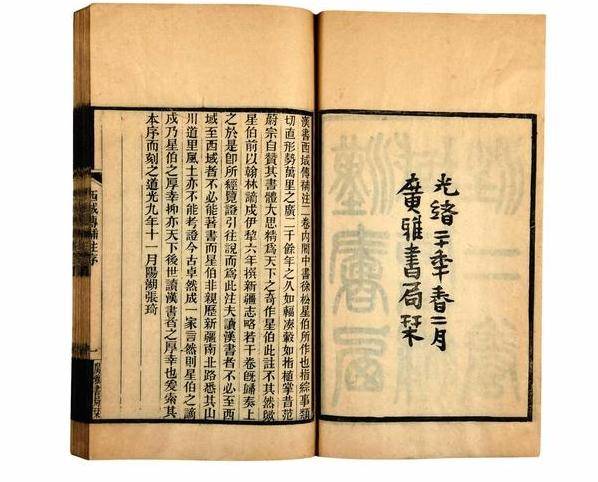 光緒二十季春二月
廣雅書局栞
漢書西域傳補注二卷內閣中書徐松星伯所作也指綜事類
切直形勢萬里之廣二千餘年之久如輻湊轂如指植掌昔范
蔚宗自贊其書體大思精爲天下之奇作星伯此註不其然歟
星伯前以翰林謫戍伊犂六年撰新疆志略若干卷旣歸奏上
之於是卽所經覽證引往說而爲此注夫讀漢書者不必至西
域至西域者不必能著書而星伯非親歷新疆南北路悉其山
川道里風土亦不能考證今古卓然成一家言然則星伯之謫
戍乃星伯之厚幸抑亦天下後世讀漢書者之厚幸也爰索其
本序而刻之道光九年十一月陽湖張琦
西域傳補注序
一
廣雅書局栞